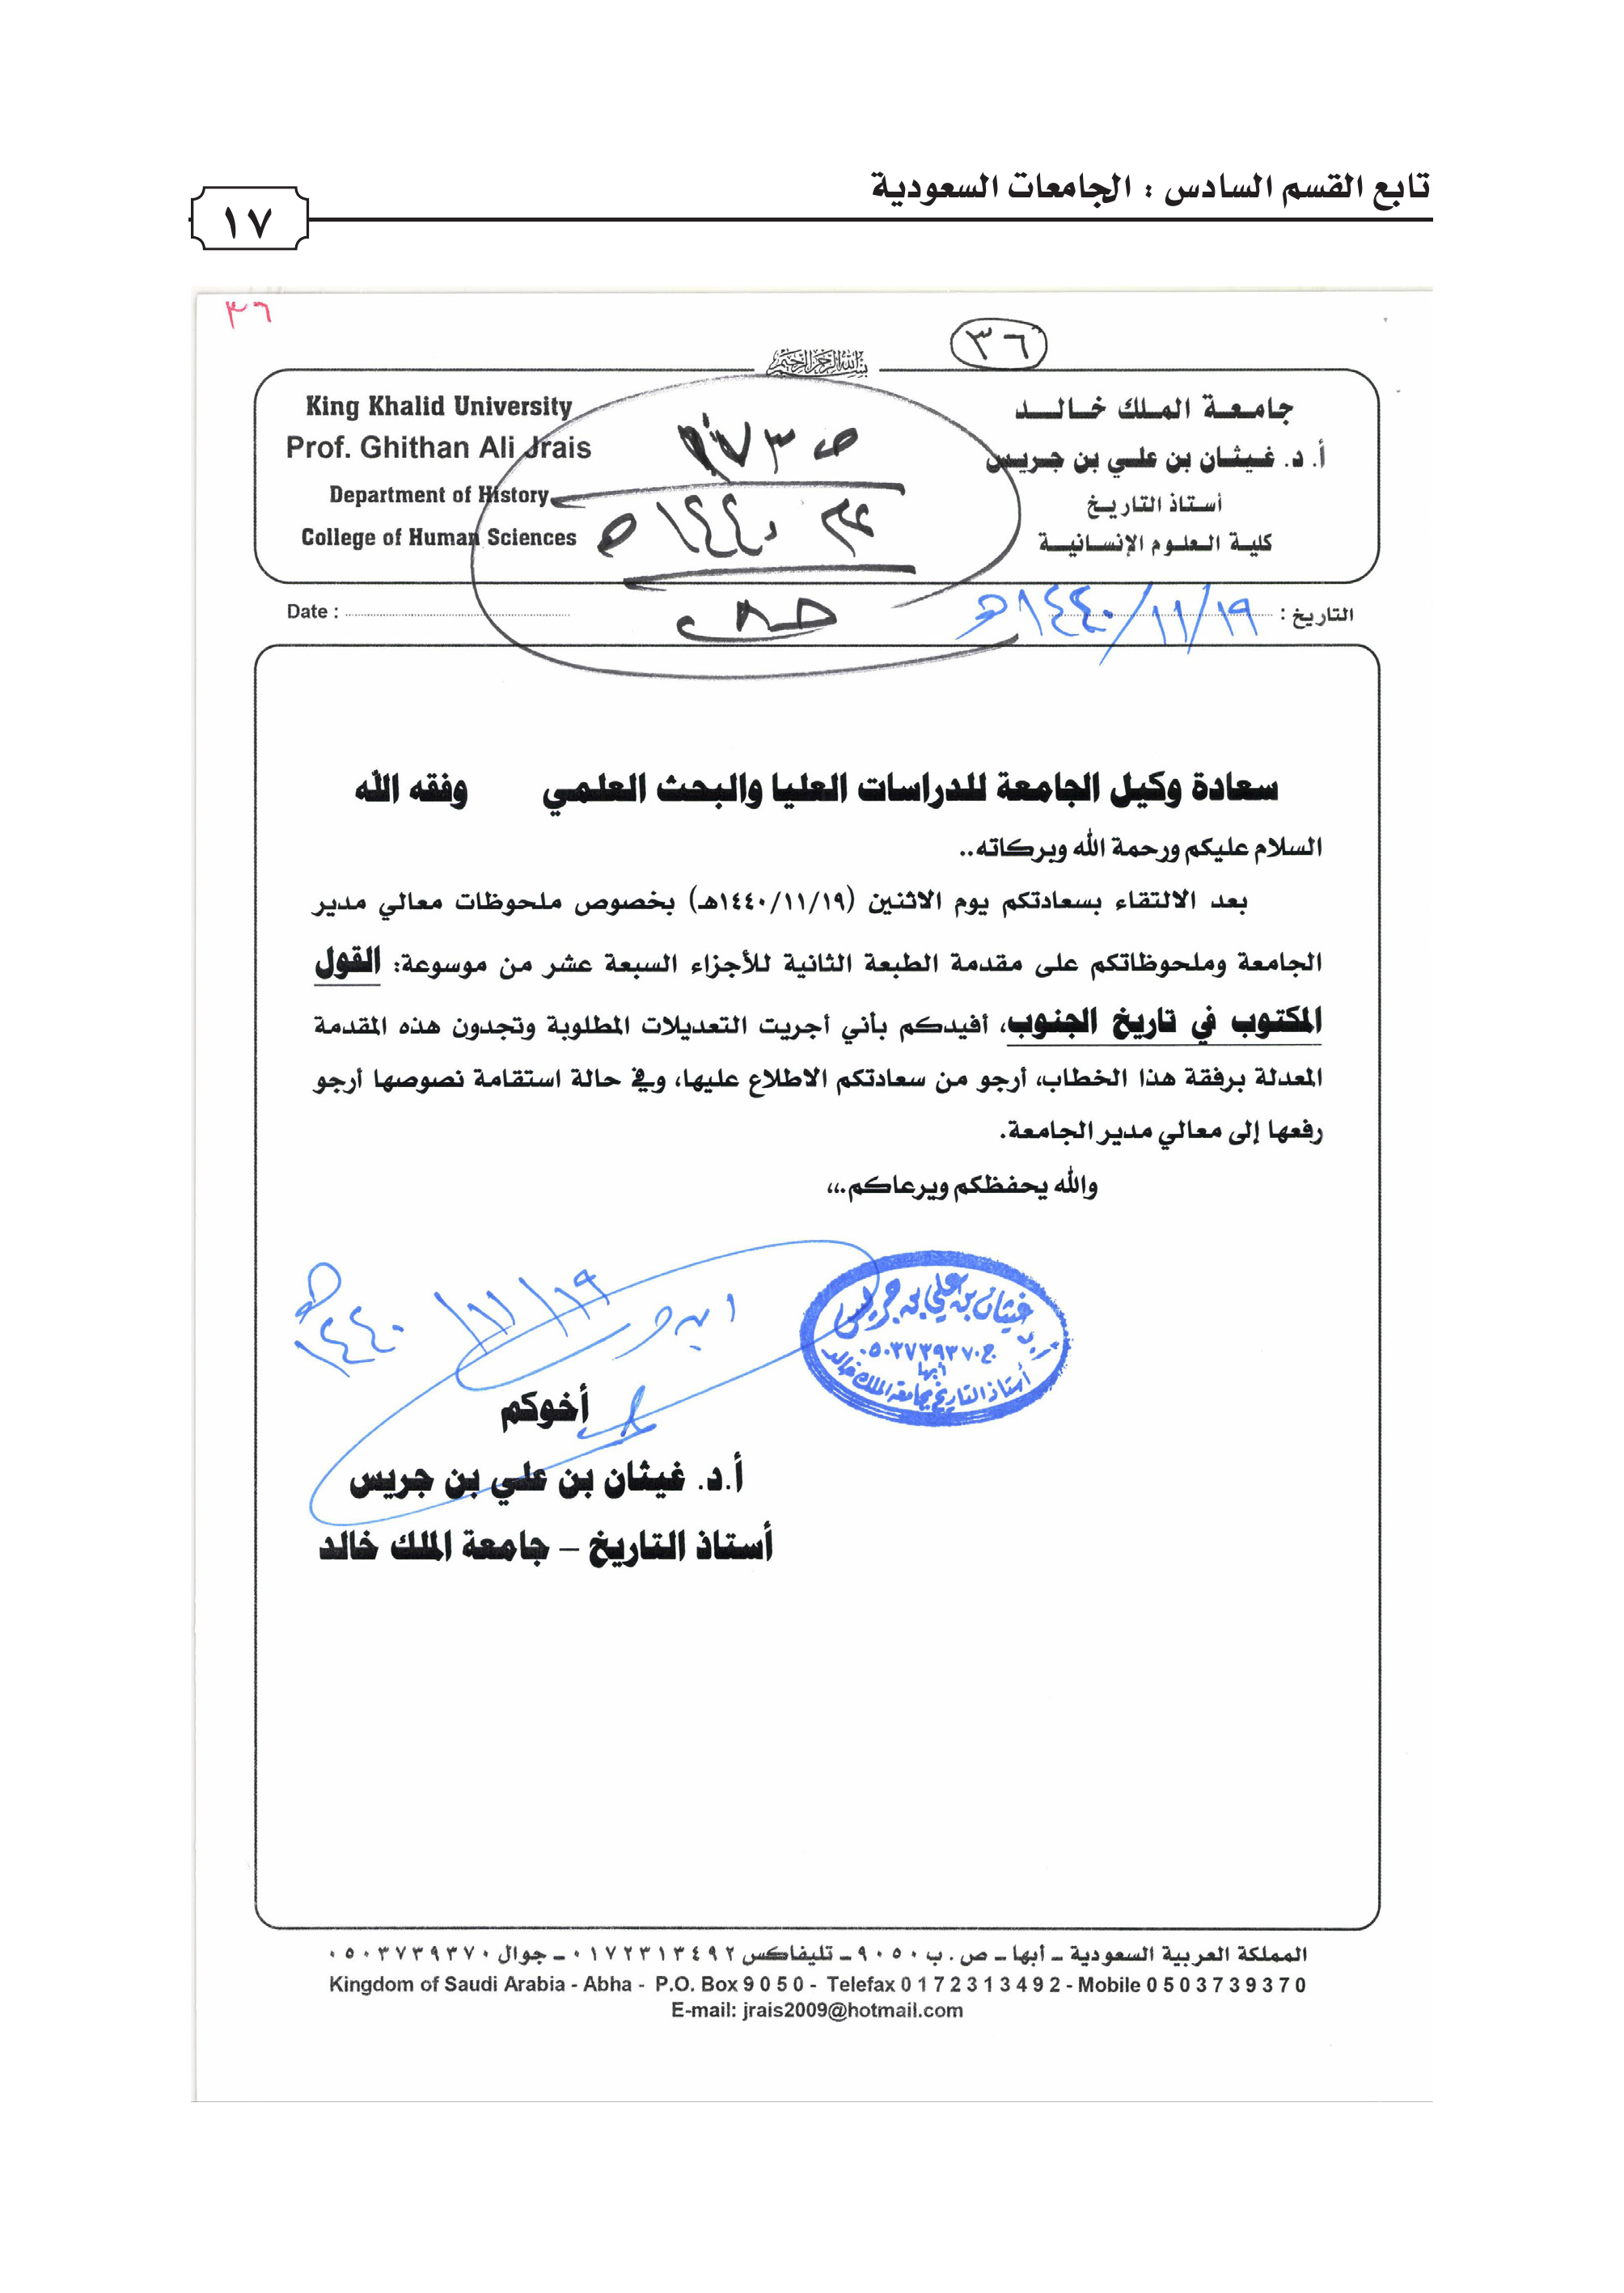 تابع القسم السادس : الجامعات السعودية
١٧
٣٦
٣٦
بسم الله الرحمن الرحيم
جامعة الملك خالد
أ. د. غيثان بن علي بن جريس
أستاذ التاريخ
كلية العلوم الإنسانية
King Khalid University
Prof. Ghithan Ali Jrais
Department of History
College of Human Sciences
١٤٤٠ هـ
التاريخ : ١٩/١١/١٤٤٠هـ
Date :
سعادة وكيل الجامعة للدراسات العليا والبحث العلمي وفقه الله
السلام عليكم ورحمة الله وبركاته..
بعد الالتقاء بسعادتكم يوم الاثنين (١٤٤٠/١١/١٩هـ) بخصوص ملحوظات معالي مدير
الجامعة وملحوظاتكم على مقدمة الطبعة الثانية للأجزاء السبعة عشر من موسوعة: القول
المكتوب في تاريخ الجنوب، أفيدكم بأني أجريت التعديلات المطلوبة وتجدون هذه المقدمة
المعدلة برفقة هذا الخطاب، أرجو من سعادتكم الاطلاع عليها، وفي حالة استقامة نصوصها أرجو
رفعها إلى معالي مدير الجامعة.
والله يحفظكم ويرعاكم،،،
أ. د غيثان بن علي بن جريس
ج ٠٥٠٣٧٣٩٣٧٠
أبها
أستاذ التاريخ بجامعة الملك خالد
١٩/١١/١٤٤٠هـ
أخوكم
أ.د. غيثان بن علي بن جريس
أستاذ التاريخ – جامعة الملك خالد
المملكة العربية السعودية – أبها – ص . ب ٩٠٥٠ – تليفاكس ٠١٧٢٣١٣٤٩٢ – جوال ٠٥٠٣٧٣٩٣٧٠
Kingdom of Saudi Arabia - Abha - P.O. Box 9 0 5 0 - Telefax 0 1 7 2 3 1 3 4 9 2 - Mobile 0 5 0 3 7 3 9 3 7 0
E-mail: jrais2009@hotmail.com